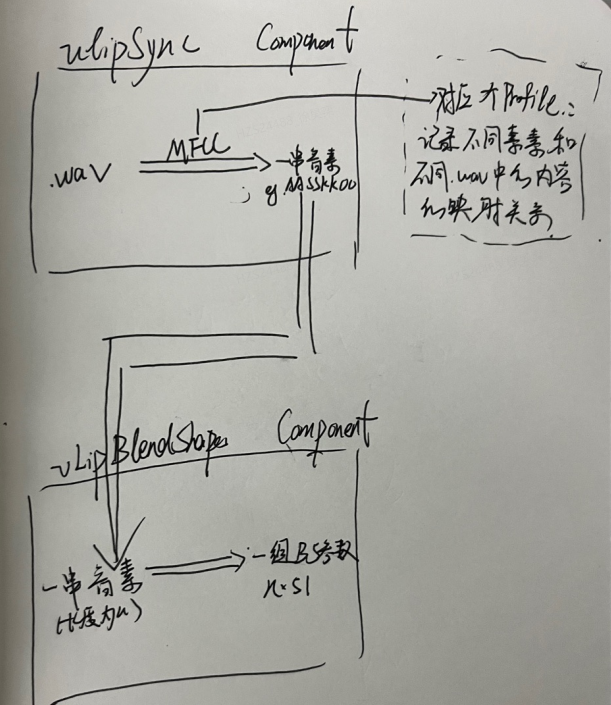 uLipSync Component
.wav
MFCC
一串音素
eg AASSKKOO
对应不同Profile:
记录不同音素和
不同.wav中的内容
的映射关系
uLipBlendShapes Component
一串音素
(长度为n)
一组BS参数
n×51